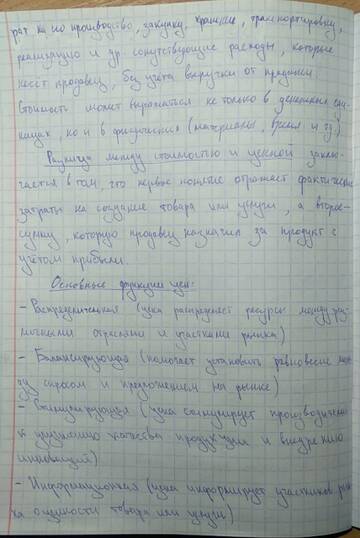 рат на его производство, закупку, хранение, транспортировку,
реализацию и др. сопутствующие расходы, которые
несёт продавец, без учёта выручки от продажи.
Стоимость может выражаться не только в денежных еди-
ницах, но и в физических (материалы, время и тд)
Разница между стоимостью и ценой заклю-
чается в том, что первое понятие отражает фактические
затраты на создание товара или услуги, а второе-
сумму, которую продавец назначил за продукт с
учётом прибыли.
Основные функции цен:
- Распределительная (цена распределяет ресурсы между раз-
личными отраслями и участками рынка)
- Балансирующая (помогает установить равновесие меж-
ду спросом и предложением на рынке)
- Стимулирующая (цена стимулирует производителей
к улучшению качества продукции и внедрению
инноваций)
- Информационная (цена информирует участников рын-
ка о ценности товара или услуги)